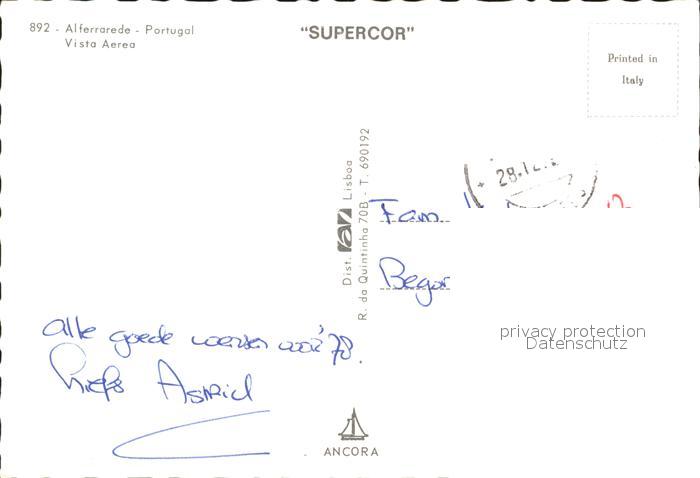 892 - Alferrarede - Portugal
Vista Aerea
"SUPERCOR"
Printed in
Italy
28.12.
Dist. Lisboa
R. da Quintinha 70B - T. 690192
Fam.
Begon
alle goede wensen voor '78.
liefs Astrid
privacy protection
Datenschutz
ANCORA